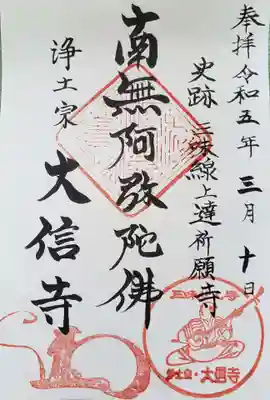 奉拝 令和五年三月十日
史跡 三味線上達祈願寺
南無阿弥陀佛
浄土宗
大信寺
浄土宗・大信寺